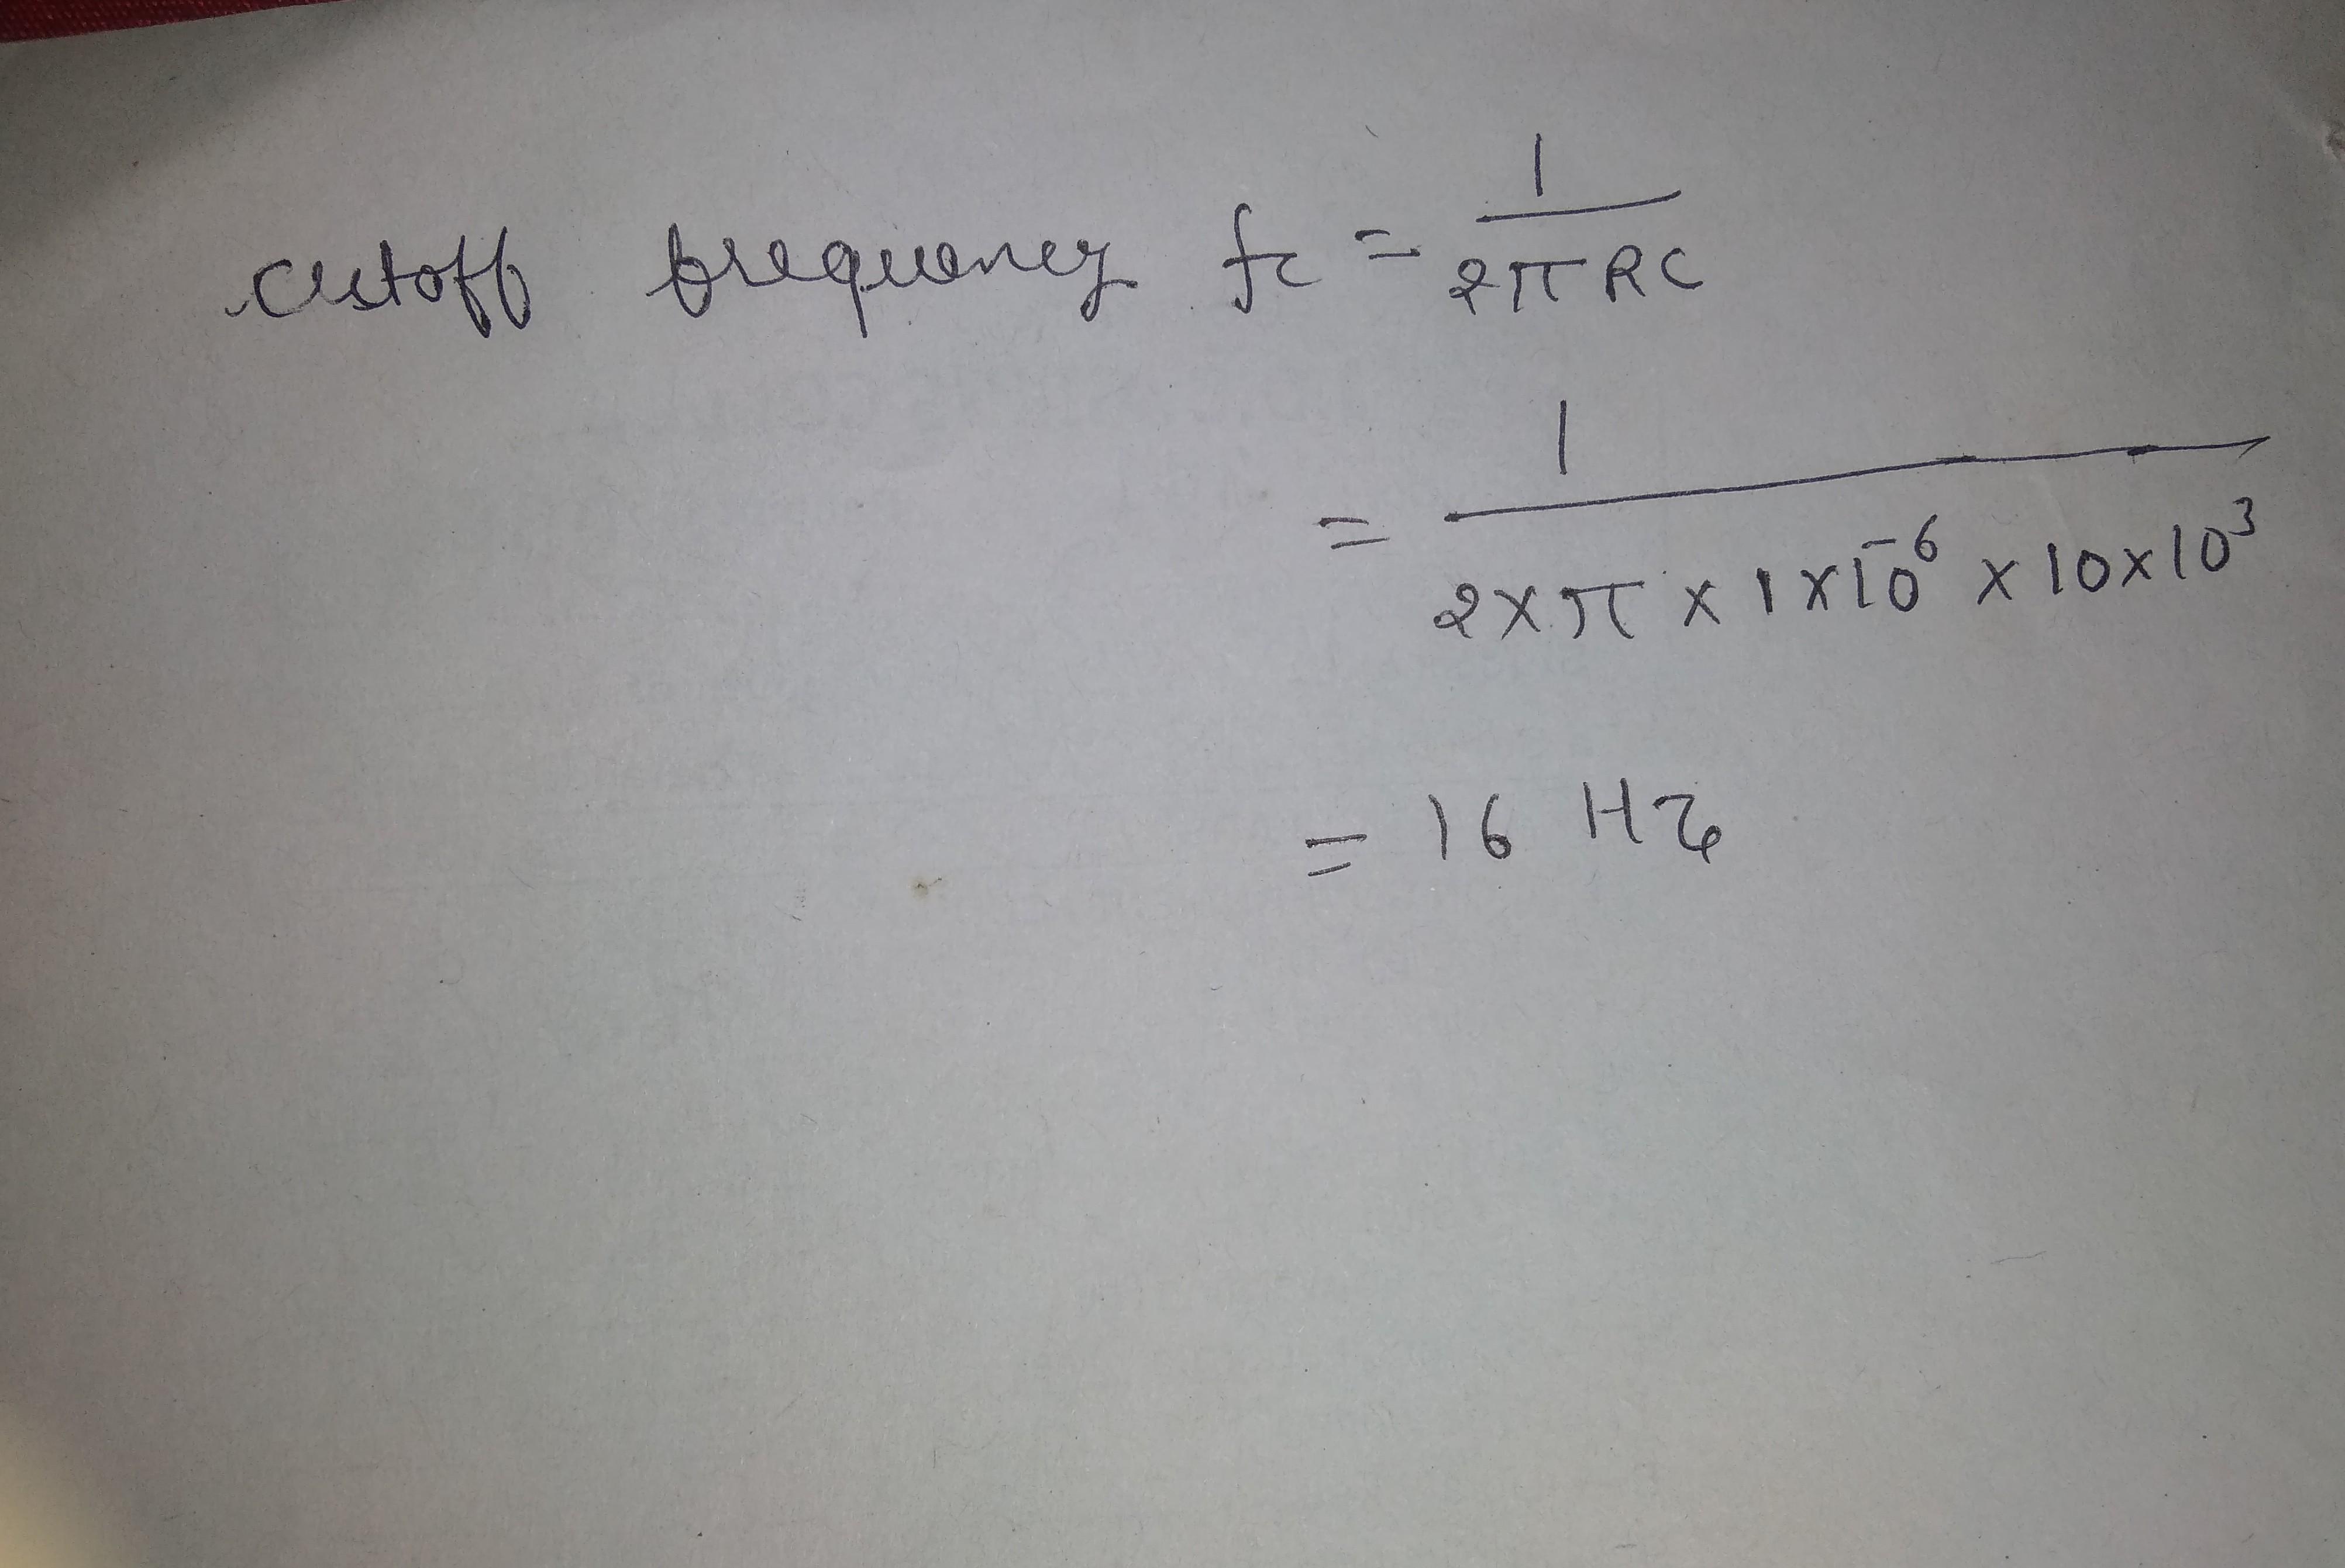 cutoff frequency fc = 1 / 2π RC
= 1 / 2 × π × 1 × 10⁻⁶ × 10 × 10³
= 16 Hz